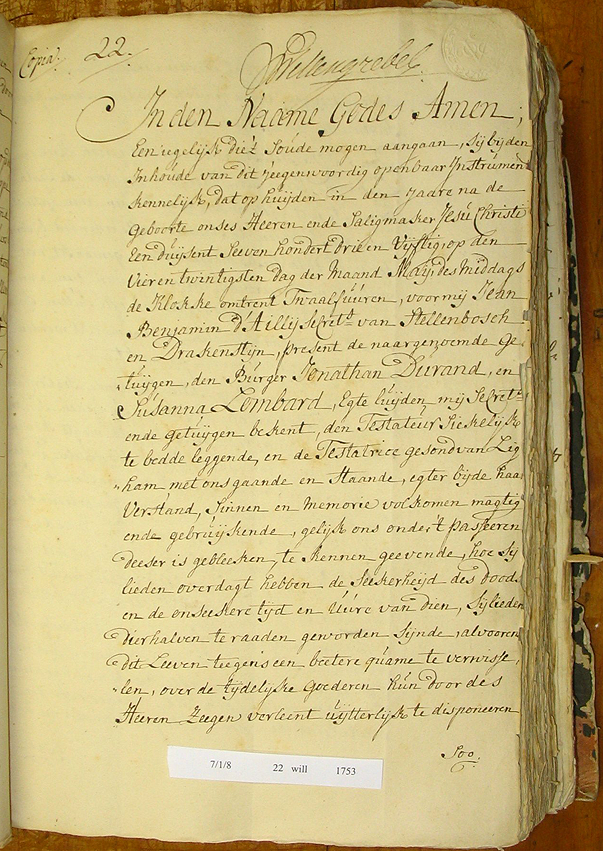 Copia.
22.
Swellengrebel.
In den Naame Godes Amen;
Een iegelijk die't soude mogen aangaan, sij bij den
Inhoude van dit jeegenwoordig openbaar Instrument
kennelijk, dat op huijden in den Jaare na de
Geboorte onses Heeren ende Saligmaker Jesu Christe
Een duijsent Seeven hondert drie en Vijftig, op den
Vier en twintigsten dag der Maand Maij, des middags
de Klokke omtrent Twaalf uuren, voor mij Jean
Benjamin d'Ailly Secret.s van Stellenbosch
en Drakensteijn, present de naargenoemde Ge-
tuijgen, den Burger Jonathan Durand, en
Susanna Lombard, Egte luijden, mij Secret.s
ende getuijgen bekent, den Testateur Siekelijk
te bedde leggende, en de Testatrice gesond van Lig-
ham met ons gaande en Staande, egter bijde haar
Verstand, Sinnen en Memorie volkomen magtig
ende gebruijkende, gelijk ons onder 't passeeren
deeser is gebleeken, te kennen geevende, hoe Sij
lieden overdagt hebben de Seekerheijd des doods
en de onseekere tijd en Uure van dien, Sijlieden
dierhalven te raaden geworden Sijnde, alvooren
dit Leeven teegens een beetere quame te verwisse-
len, over de tijdelijke Goederen hun door des
Heeren Zeegen verleent uijtterlijk te disponeeren
Soo.
7/1/8 22 will 1753